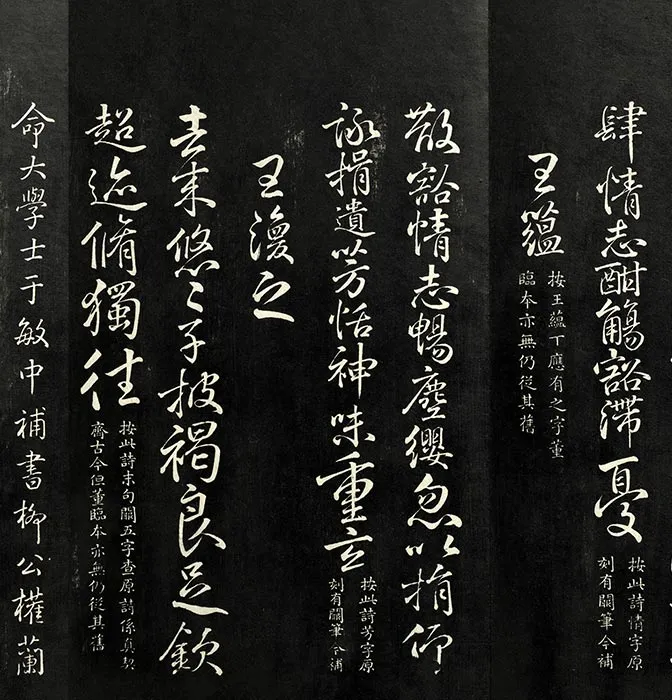 肆情志酣觴豁滯憂
按此詩情字原
刻有闕筆今補
王蘊
按王蘊下應有之字董
臨本亦無仍從其舊
散豁情志暢塵纓忽以捐仰
詠挹遺芳怡神味重玄
按此詩芳字原
刻有闕筆今補
王渙之
去來悠悠子披褐良足欽
超迹脩獨往
按此詩末句闕五字查原詩係真契
齊古今但董臨本亦無仍從其舊
命大學士于敏中補書柳公權蘭